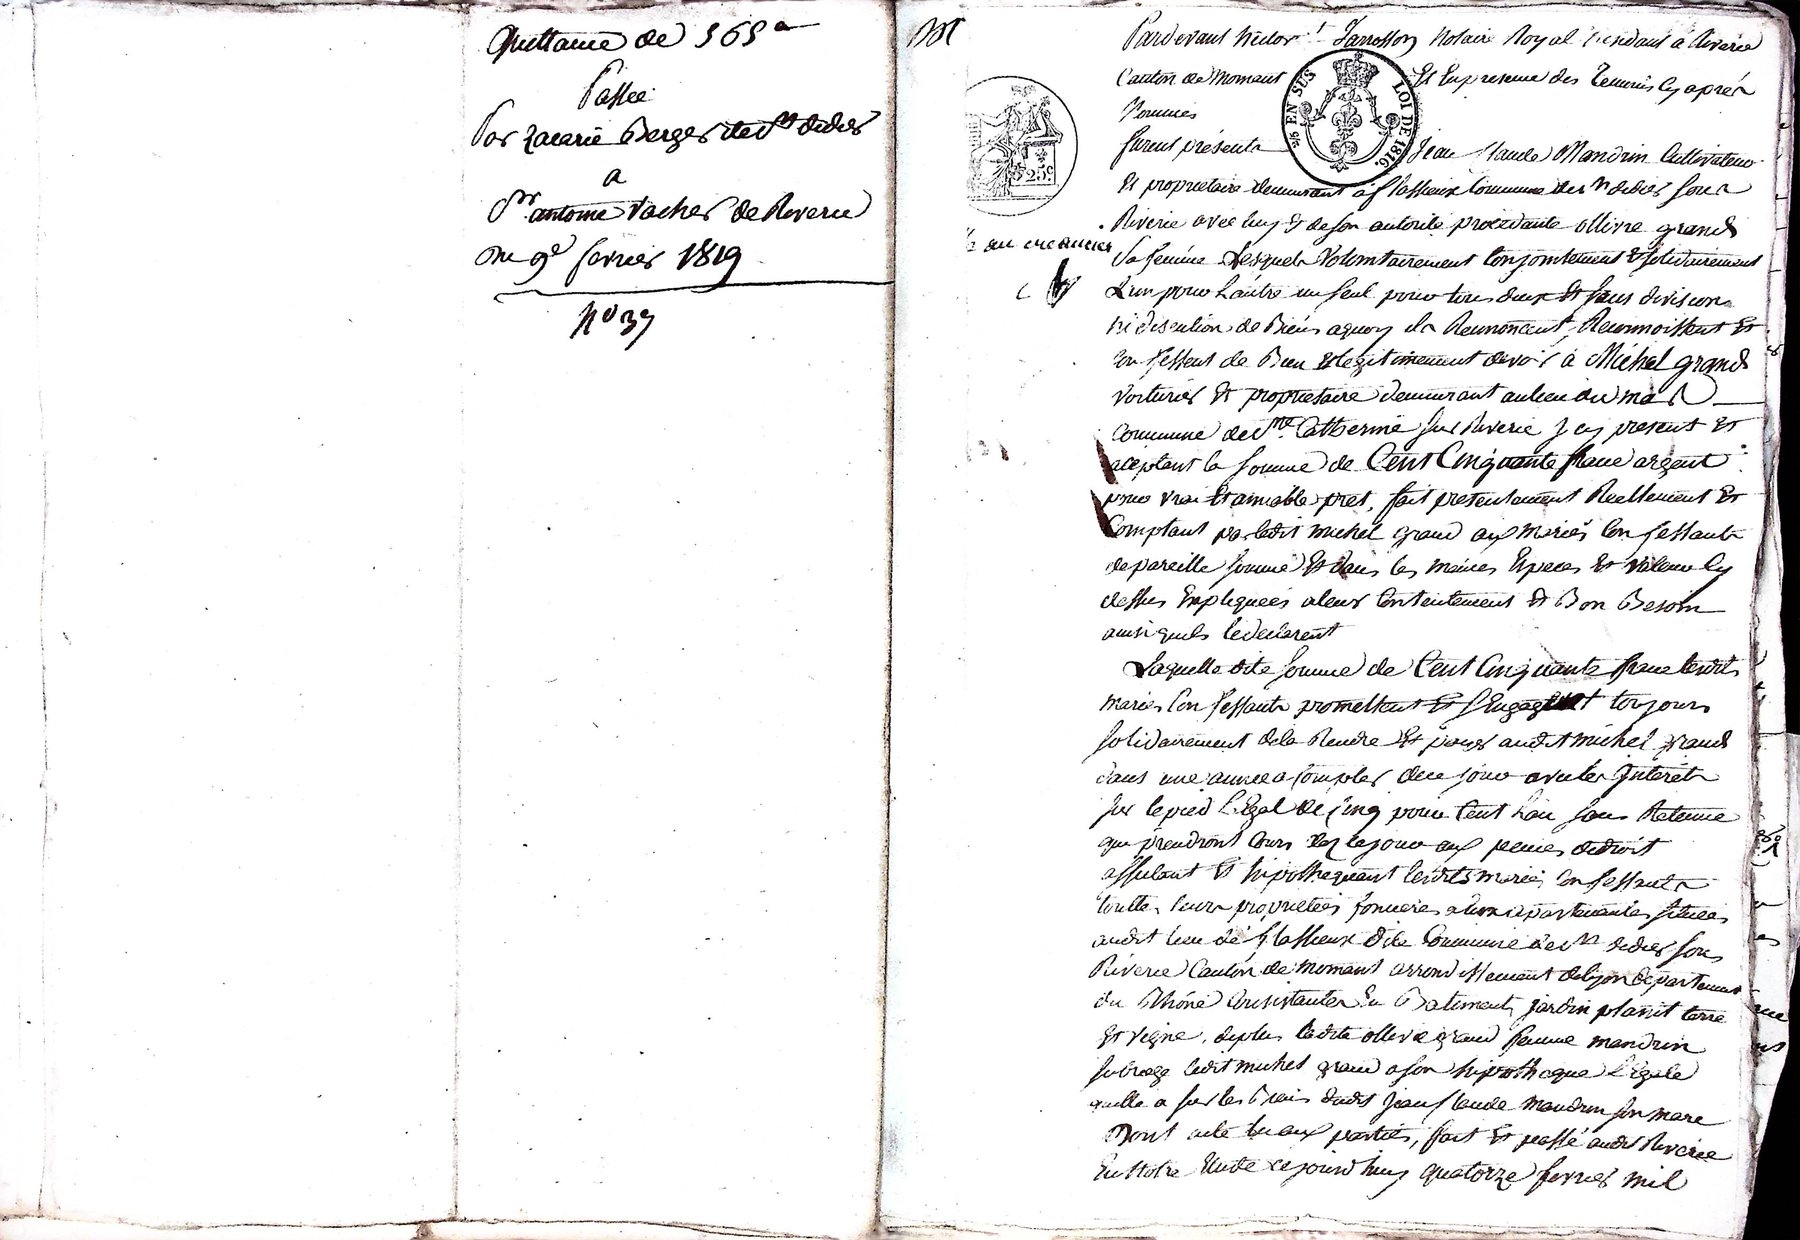 Quittance de 565
Passée
Par Zacarie Berger de St didier
a
Sr antoine Vacher de Riverie
Du 9e fevrier 1819
No 37
Pardevant hector Jarrosson Notaire Royal Residant a Riverie
Canton de Mornant Et En presence des Temoins Cy après
Nommés
EN SUS
LOI DE 1816.
25c
furent présents Jean Claude Mandrin Cultivateur
Et proprietaire demeurant a flassieux Commune de St didier sous
Riverie avec luy Et de son autorité procedante ollivre grand
au creancier
Sa femme Lesquels Volontairement Conjointement Et solidairement
L'un pour L'autre un seul pour tous deux Et sans division
ni discution de Biens aquoy ils Renoncent, Reconnoissent Et
Confessent de Bien Et legitimement devoir à Michel grand
Voiturier Et proprietaire demeurant au lieu du mas
Commune de Ste Catherine sur Riverie Icy present Et
aceptant la somme de Cent Cinquante franc argent
pour vrai Et amiable pret, fait presentement Reellement Et
Comptant par ledit michel grand aux mariés Confessants
de pareille somme Et dans les memes Especes Et Valeur Cy
dessus Expliquées a leur Contentement Et Bon Besoin
ainsi quils le declarent
Laquelle dite somme de Cent Cinquante franc lesdits
mariés Confessants promettent Et s'Engagent toujours
solidairement de la Rendre Et payer audit michel grand
dans une année a Compter de ce jour avec les Interêts
sur le pied Légal de Cinq pour Cent L'an sans Retenue
qui prendront Cours dez ce jour aux peines de droit
affectant Et hipothequant lesdits mariés Confessants
toutes leurs proprietées foncieres a Eux apartenantes situées
audit lieu de flassieux dite Commune de St didier sous
Riverie Canton de mornant arrondissement de Lyon departement
du Rhône Consistantes En Batiments, jardin plassit terre
Et vigne, deplus ladite ollivre grand femme mandrin
subroge ledit michel grand a son hipotheque Légale
quelle a sur les Biens dudit Jean Claude mandrin son mari
Dont acte lu aux parties, fait Et passé audit Riverie
En notre Etude cejourdhuy quatorze fevrier mil